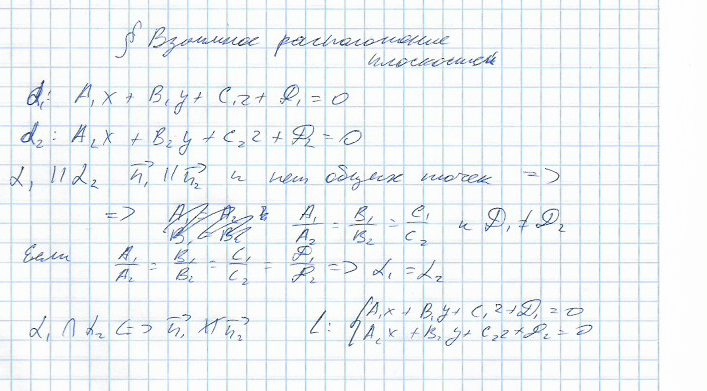 § Взаимное расположение
плоскостей
α₁: A₁x + B₁y + C₁z + D₁ = 0
α₂: A₂x + B₂y + C₂z + D₂ = 0
α₁ || α₂ n₁⃗ || n₂⃗ и нет общих точек =>
=> A₁/A₂ = B₁/B₂ = C₁/C₂ и D₁ ≠ D₂
Если A₁/A₂ = B₁/B₂ = C₁/C₂ = D₁/D₂ => α₁ = α₂
α₁ ∩ α₂ <=> n₁⃗ ∦ n₂⃗ L: { A₁x + B₁y + C₁z + D₁ = 0
A₂x + B₂y + C₂z + D₂ = 0